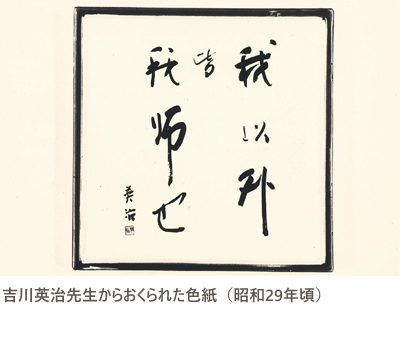 我以外
皆
我師也
英治
吉川英治先生からおくられた色紙（昭和29年頃）